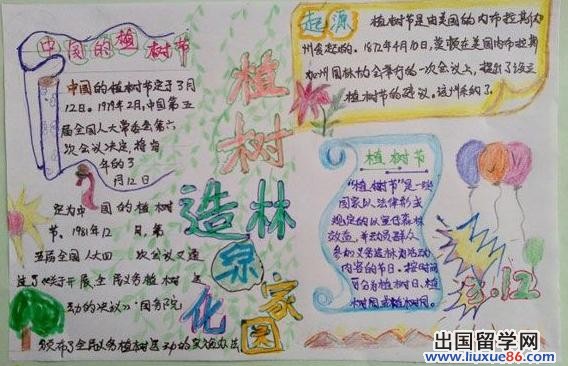 中国的植树节
中国的植树节定于3月
12日。1979年2月,中国第五
届全国人大常委会第六
次会议决定,将每
年的3
月12日
定为中国的植树
节。1981年12月,第
五届全国人大四次会议又通
过了《关于开展全民义务植树运
动的决议》。国务院
颁布了全民义务植树运动的实施办法
植树
造林
绿化
家园
起源
植树节是由美国的内布拉其加
州会起的。1872年4月10日,莫顿在美国内布拉其
加州园林协会举行的一次会议上,提出了设立
植树节的建议。该州采纳了
植树节
"植树节"是一些
国家以法律形式
规定的以宣传森林
效益,并动员群众
参加义务造林为活动
内容的节日。按时间
可分为植树日、植
树周或植树月。
3.12
出国留学网
www.liuxue86.com